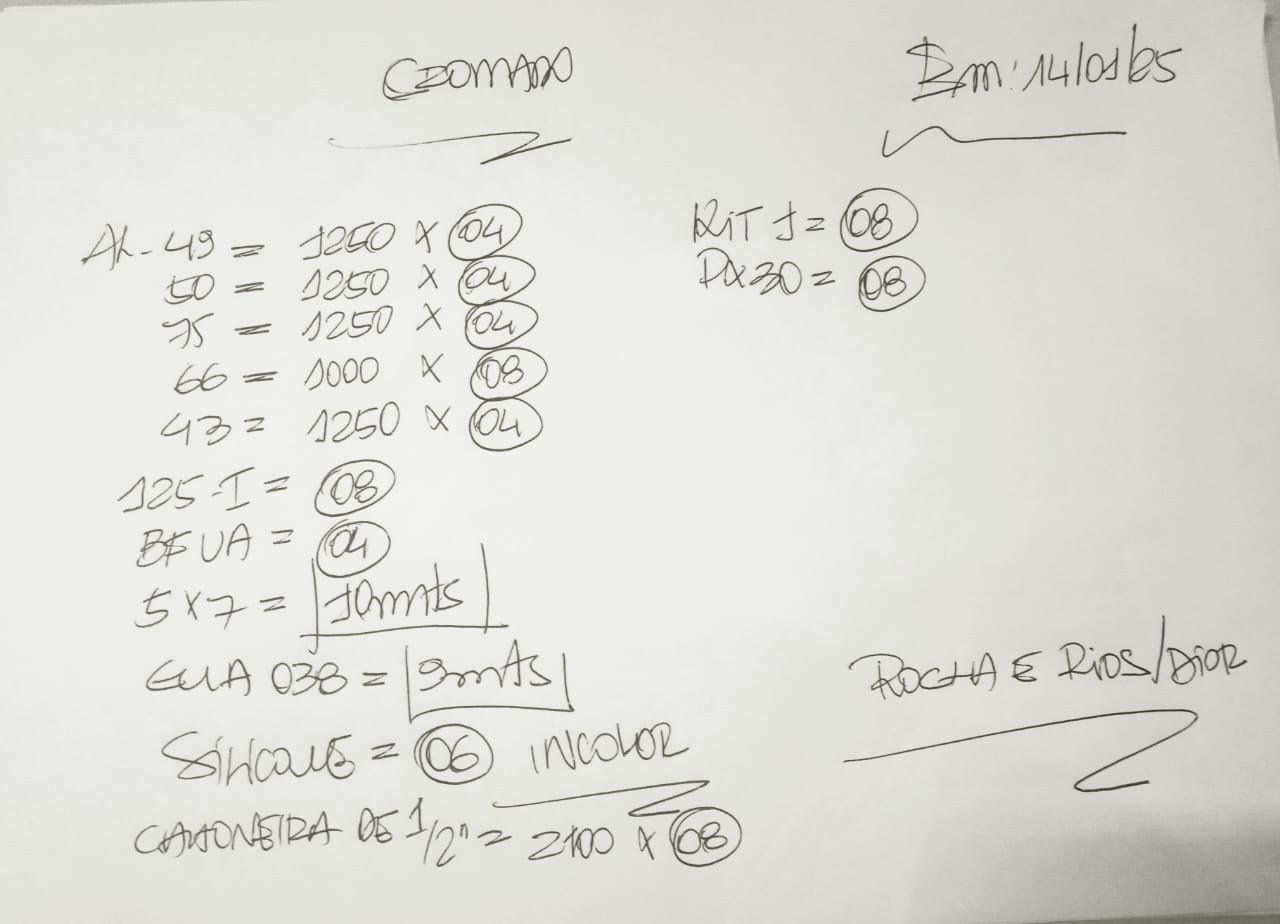 CROMADO
Em: 14/01/25
AL-49 = 1250 X 04
50 = 1250 X 04
75 = 1250 X 04
66 = 1000 X 08
43 = 1250 X 04
125-I = 08
UA = 04
5 X 7 = 10mts
038 = 9mts
SILICONE = 06 INCOLOR
CANTONEIRA DE 1/2" = 2100 X 08
KIT 1 = 08
30 = 08
ROCHA E RIOS/DIOR